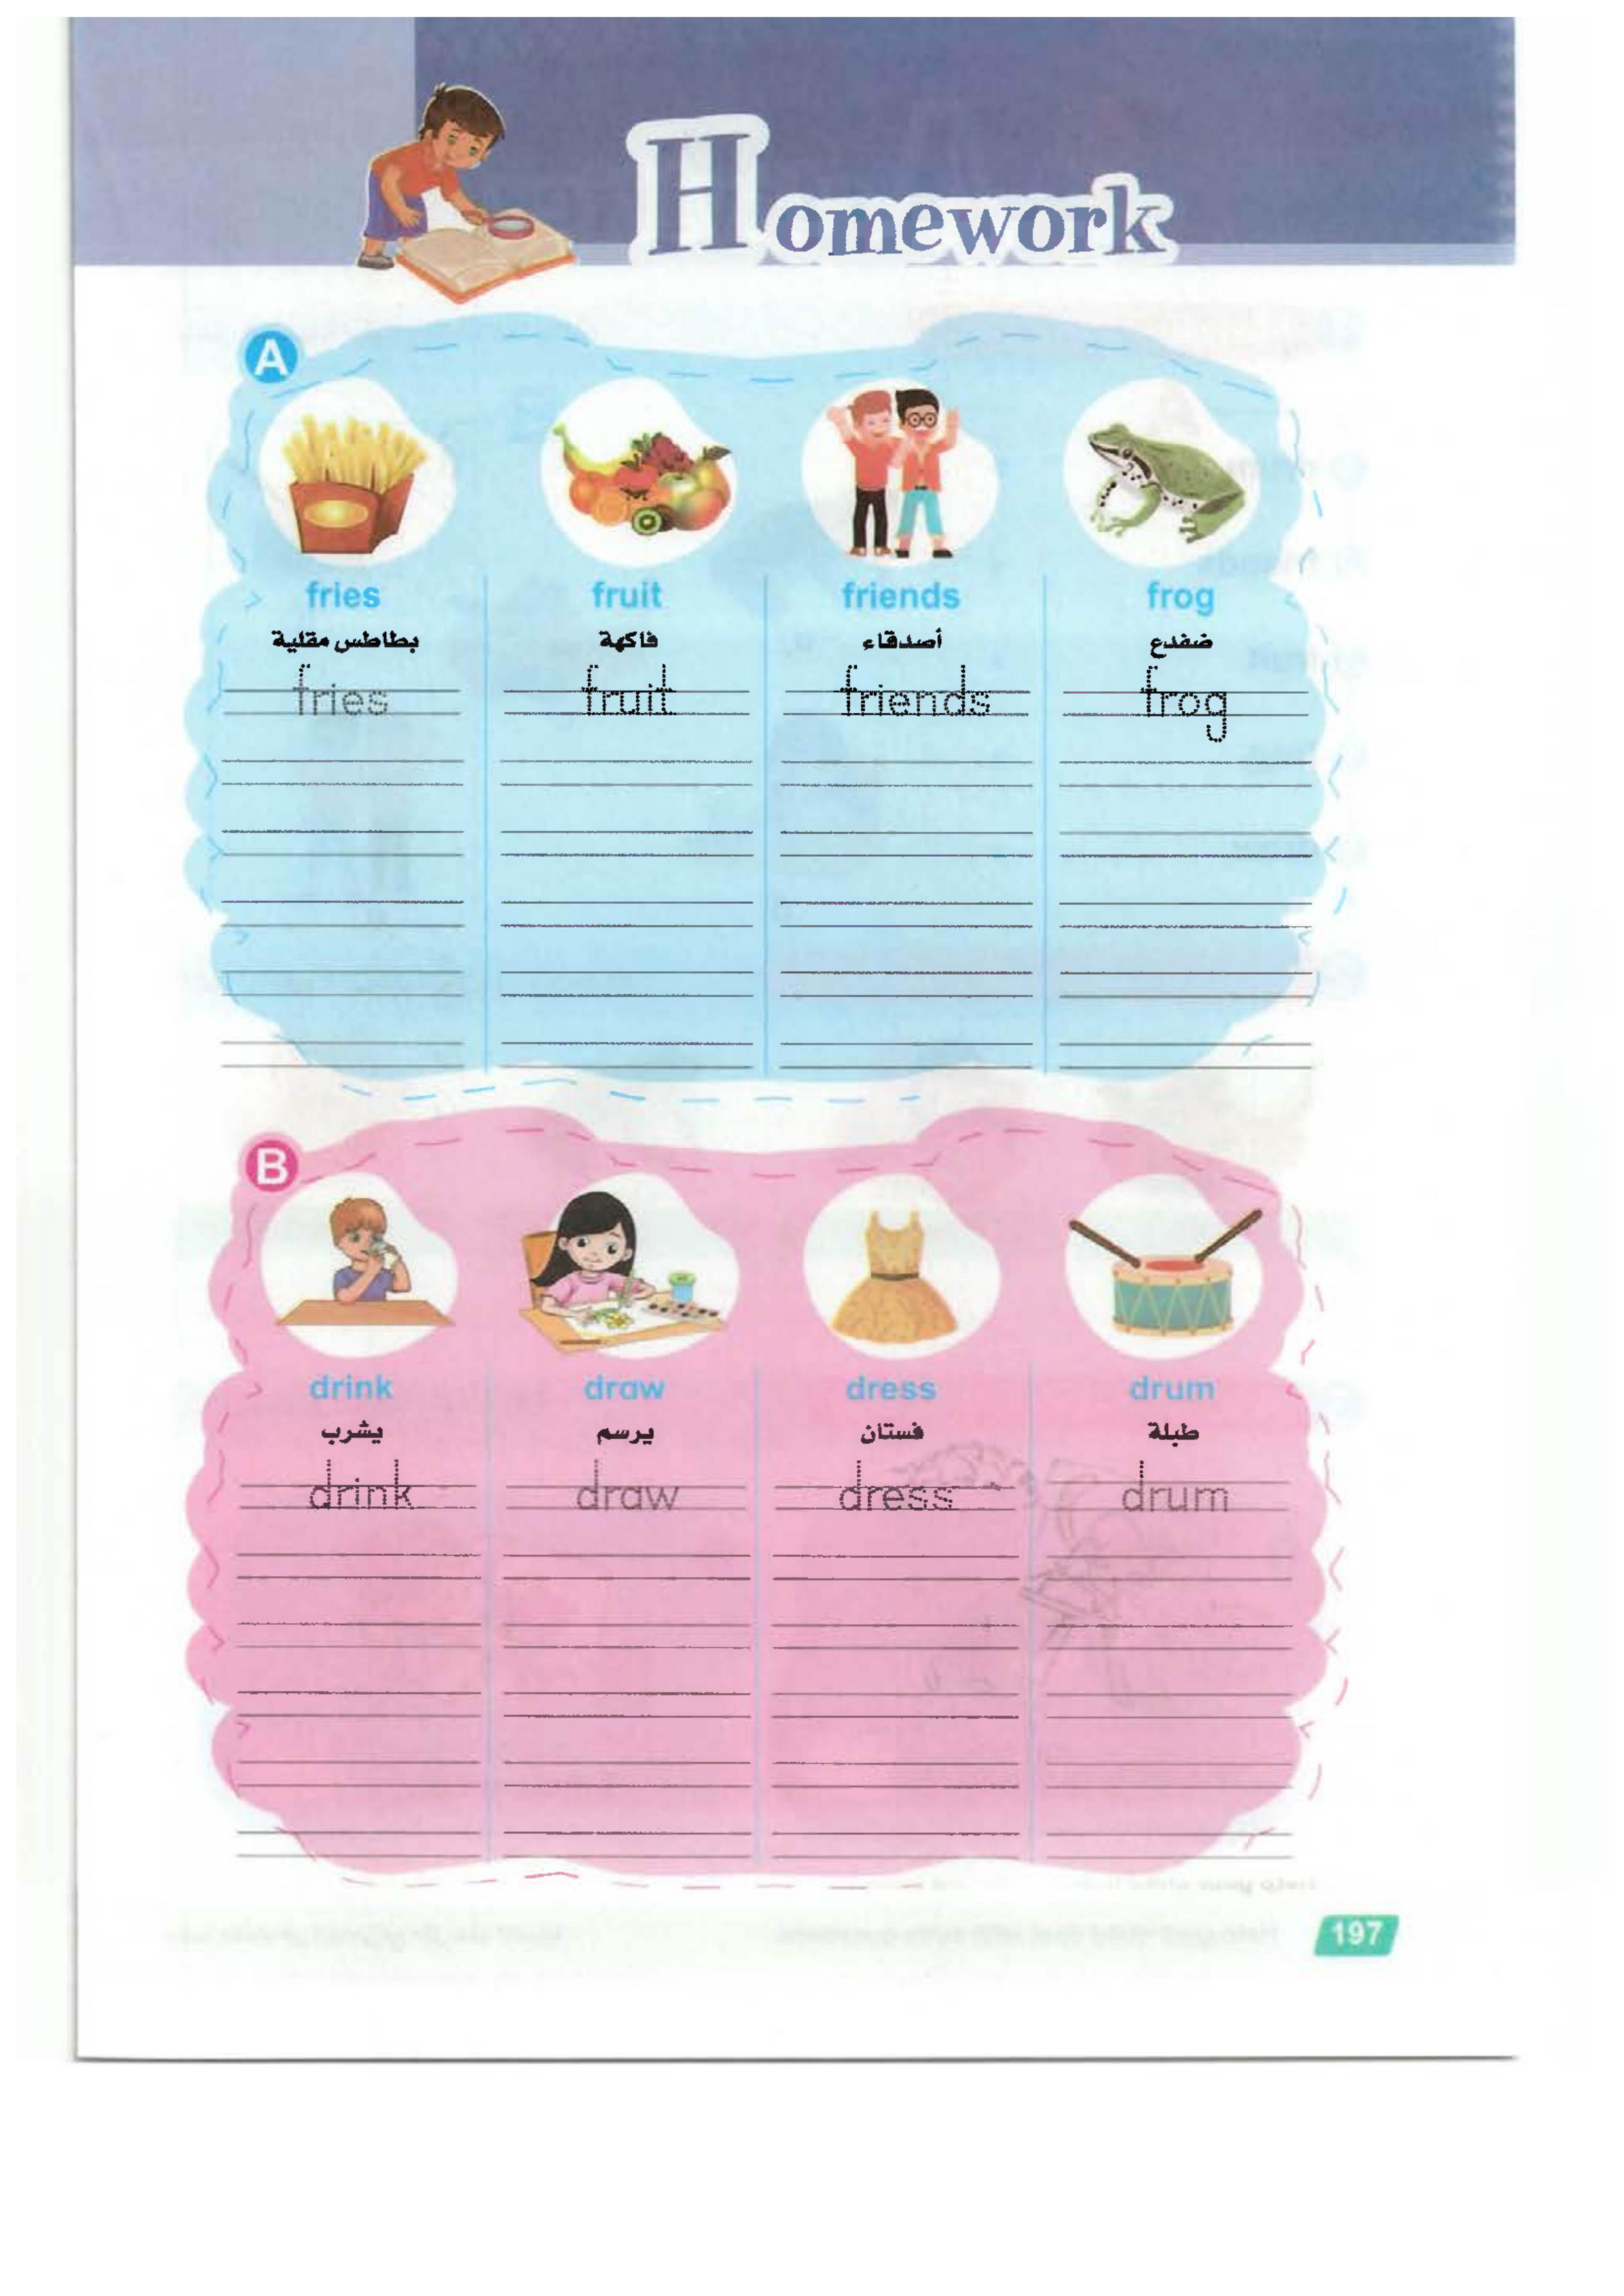 Homework
A
fries fruit friends frog
بطاطس مقلية فاكهة أصدقاء ضفدع
fries fruit friends frog
B
drink draw dress drum
يشرب يرسم فستان طبلة
drink draw dress drum
197